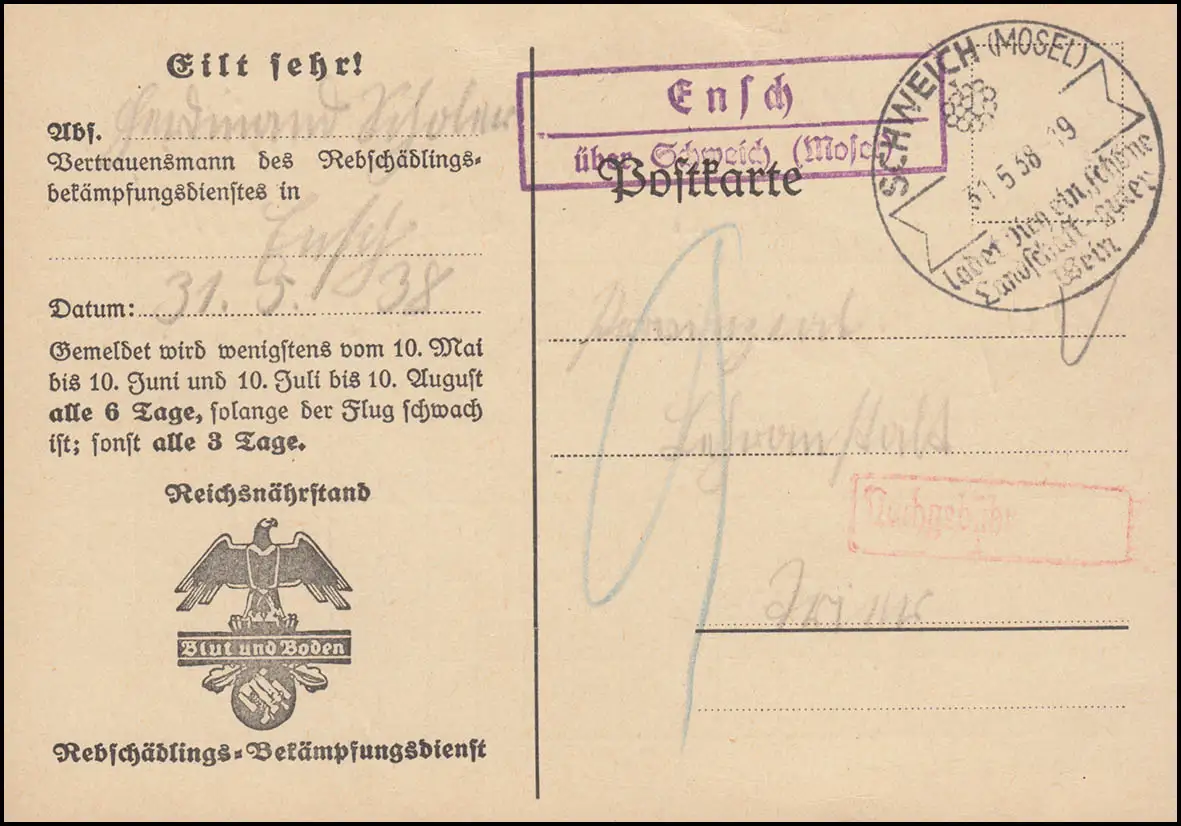 Eilt sehr!
Abs. Ferdinand Scholer
Vertrauensmann des Rebschädlings-
bekämpfungsdienstes in
Ensch
Datum: 31. 5. 38
Gemeldet wird wenigstens vom 10. Mai
bis 10. Juni und 10. Juli bis 10. August
alle 6 Tage, solange der Flug schwach
ist; sonst alle 3 Tage.
Reichsnährstand
Blut und Boden
Rebschädlings-Bekämpfungsdienst
Ensch
über Schweich (Mosel)
Postkarte
SCHWEICH (MOSEL)
31.5.38 19
ladet Sie ein, schöne
Landschaft - guter
Wein
9
Provinzial
Lehranstalt
Nachgebühr
Trier